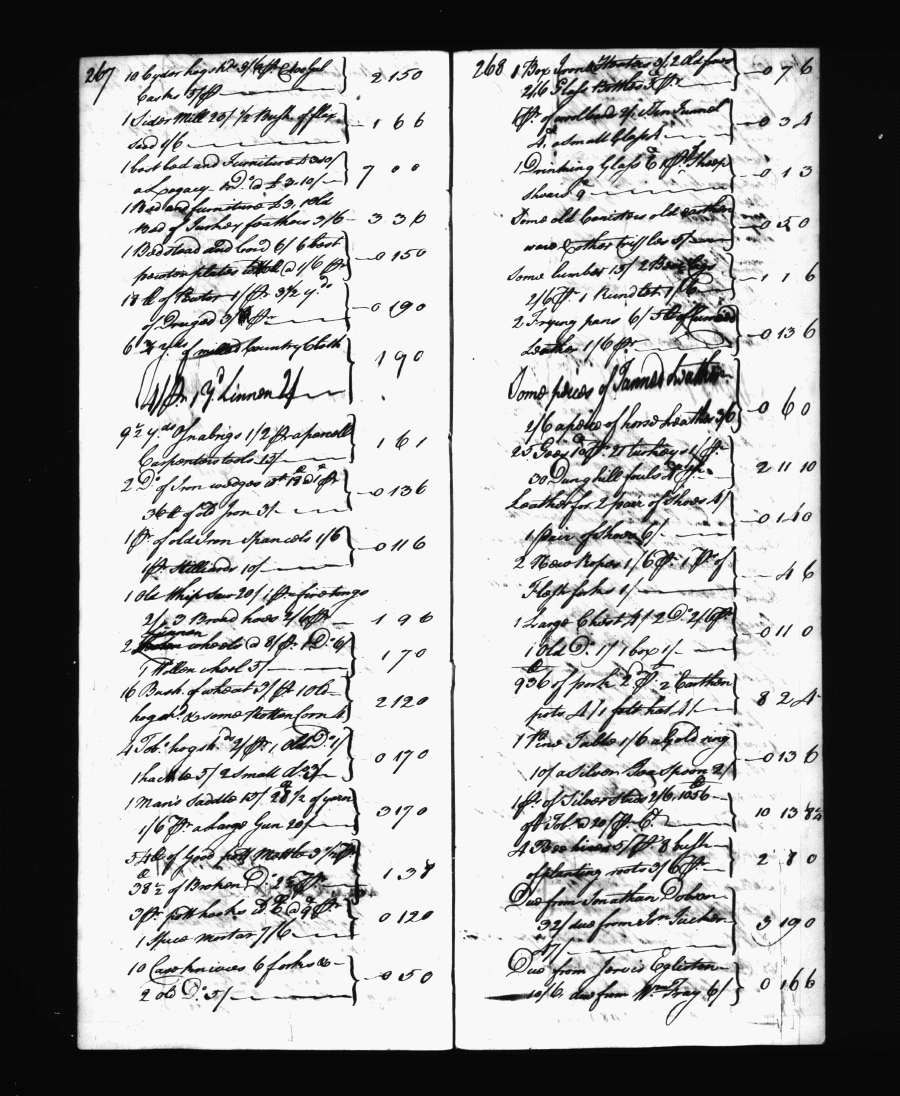 267
10 Cyder hogshds 3/6 pr
Casks 5/ pr 2 15 0
1 Sider Mill 20/ 1/2 Bush of flax
seed 1/6 1 6 6
1 best bed and Furniture £ 3.10/
a Legacy 1 Do @ £ 3.10/ 7 0 0
1 Bed and furniture £ 3, 1 old
Bed of Turkey feathers 3/6 3 3 6
1 Bedstead and Cord 6/ 6 best
pewter plates @ 1/6 pr 0 15 0
18 lb of Pewter 1/ pr 3 1/2 yds
of Druged 3/ pr 0 19 0
6 3/4 yds of milled Country Cloth
4/ pr 1 yd Linnen 2/ 1 9 0
9 1/2 yds Osnabrigs 1/2 pr a parcell
Carpenters tools 15/ 1 6 1
2 Do of Iron wedges wt 18 lb @ pr
36 lb of old Iron 3/ 0 13 6
1 pr of old Iron Spancels 1/6
1 pr Stilliards 10/ 0 11 6
1 Old Whip Saw 20/ 1 pr fire tongs
2/ 3 Broad hoes 2/6 pr 1 9 6
Linnen
2 wheels @ 8/ pr 1 Do 6/
1 Wollen wheel 5/ 1 7 0
16 Bush. of wheat 3/ pr 10 old
hogshds & some Rotten Corn 4/ 2 12 0
4 Tobo hogshds 2/ pr 1 old Do 1/
1 hackle 5/ 2 small do 3/ 0 17 0
1 Man's Saddle 15/ 28 1/2 of yarn
1/6 pr a Large Gun 20/ 3 17 0
54 lb of Good pott Mettle 3 1/2 pr
38 1/2 of Broken Do 2 pr 1 3
3 pr pott hooks @ 9 pr
1 Spice mortar 7/6 0 12 0
10 Case knives 6 forks &
2 old Do 5/ 0 5 0
268
1 Box Iron & Heaters 3/ 2 old
2/6 Glass Bottles pr 0 7 6
1 pr of 2/ Tin Funnel
a Small Glass 0 3 4
1 Drinking Glass 6 1 pr Sheep
Shears 9 0 1 3
Some old Canisters old earthen
ware & other triffles 5/ 0 5 0
Some lumber 15/ 2 Bee
2/6 pr 1 Rundlet 1/6 1 1 6
2 Frying pans 6/ 5 lb of
Leather 1/6 pr 0 13 6
Some peices of Tanned Leather
2/6 a peice of horse Leather 3/6 0 6 0
25 Geese 10 pr 21 turkeys 1/ pr
30 Dunghill fouls pr 2 11 10
Leather for 2 pair of Shoes 4/
1 pair of Shoes 6/ 0 10
2 New Ropes 1/6 pr 1 pr of
Flesh forks 1/ 4 6
1 Large Chest 4/ 2 Do 2/6 pr
1 Old Do 1/ 1 box 1/ 0 11 0
936 of pork 2 d pr 2 Earthen
pots 4/ 1 felt hat 4/ 8 2 4
1 Pine Table 1/6 a Gold ring
10/ a Silver Tea Spoon 2/ 0 13 6
1 pr of Silver 2/6 1056
of Tobo @ 20/ pr Ct 10 13 8 1/2
4 Bee hives 5/ pr 8 bush
of planting roots 3/6 pr 2 8 0
Due from Jonathan Dobson
32/ due from Jno Tucker
47/ 3 19 0
Due from Jervis Egliston
10/6 due from Wm Tray 6/ 0 16 6